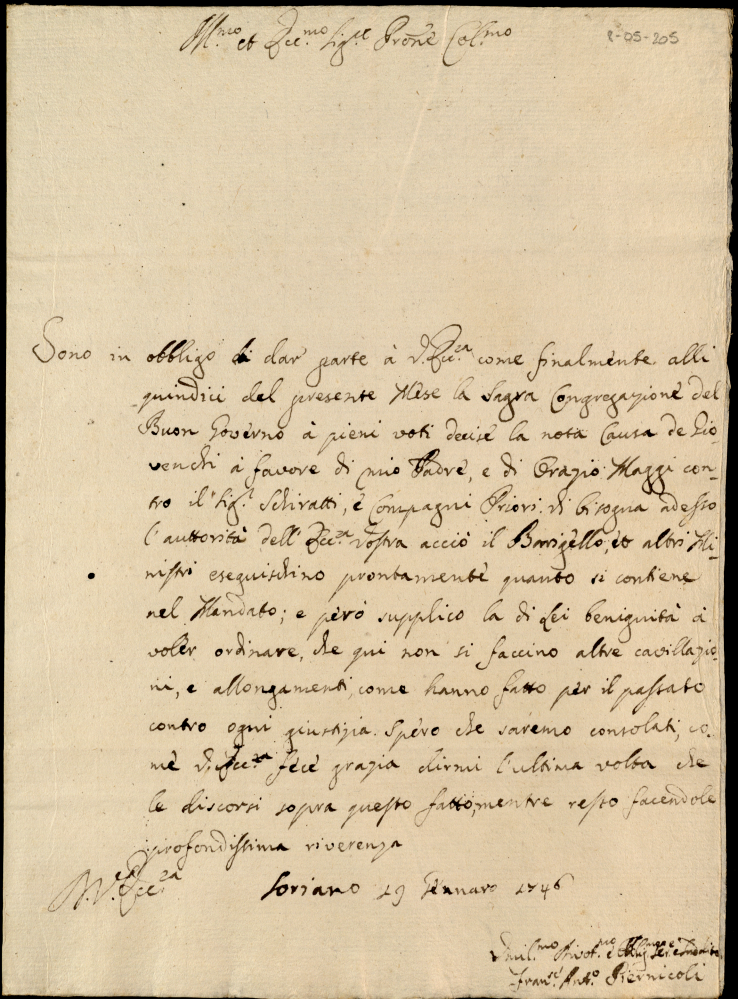 Ill.mo et Ecc.mo Sig.re Prone Col.mo
2-05-205
Sono in obbligo di dar parte à V. Ecc.za come finalmente alli
quindici del presente Mese la Sagra Congregazione del
Buon Governo à pieni voti decise la nota Causa de Gio-
venchi à favore di mio Padre, e di Orazio Maggi con-
tro il Sig.r Schiratti, e Compagni Priori. Vi bisogna adesso
l'auttorità dell'Ecc.za Vostra acciò il Barigello, et altri Mi-
nistri eseguischino prontamente quanto si contiene
nel Mandato; e però supplico la di Lei benignità à
voler ordinare, che qui non si faccino altre cavillazio-
ni, e allongamenti, come hanno fatto per il passato
contro ogni giustizia. Spero che saremo consolati, co-
me V. Ecc.za fece grazia dirmi l'ultima volta che
le discorsi sopra questo fatto, mentre resto facendole
profondissima riverenza
Di V. Ecc.za
Soriano 19 Gennaro 1746
Umil.mo Divot.mo e Oblig.mo
Fran.co Ant.o Piernicoli